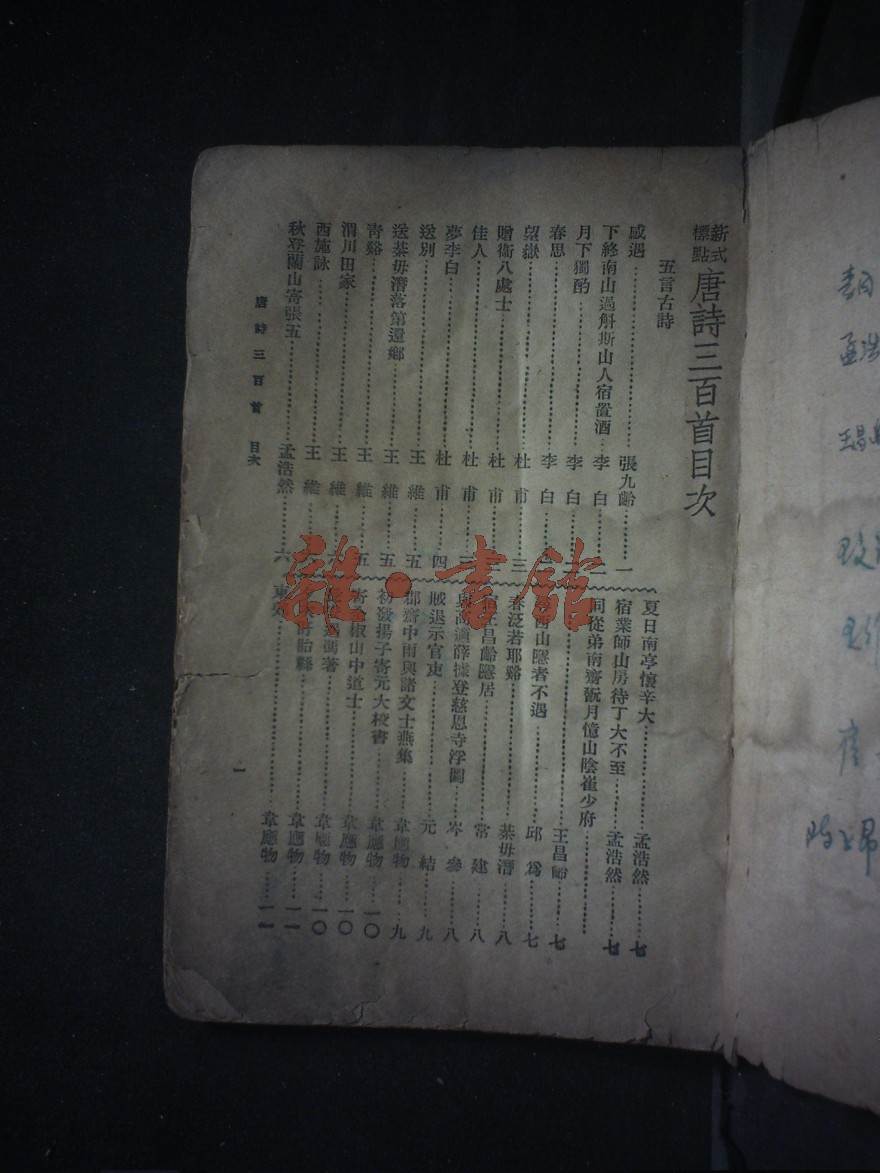 新式標點 唐詩三百首目次
五言古詩
感遇 張九齡 一
下終南山過斛斯山人宿置酒 李白
月下獨酌 李白
春思 李白
望嶽 杜甫 三
贈衞八處士 杜甫
佳人 杜甫
夢李白 杜甫 四
送別 王維 五
送綦毋潛落第還鄉 王維 五
青谿 王維 五
渭川田家 王維
西施詠 王維
秋登蘭山寄張五 孟浩然 六
夏日南亭懷辛大 孟浩然 七
宿業師山房待丁大不至 孟浩然 七
同從弟南齋翫月憶山陰崔少府
王昌齡 七
山隱者不遇 邱爲 七
春泛若耶谿 綦毋潛 八
王昌齡隱居 常建 八
薛據登慈恩寺浮圖 岑參 八
賊退示官吏 元結 九
郡齋中雨與諸文士燕集 韋應物 九
初發揚子寄元大校書 韋應物 一〇
椒山中道士 韋應物 一〇
馮著 韋應物 一〇
盱眙縣 韋應物 一一
東郊 韋應物 一一
唐詩三百首 目次
一
雜·書館